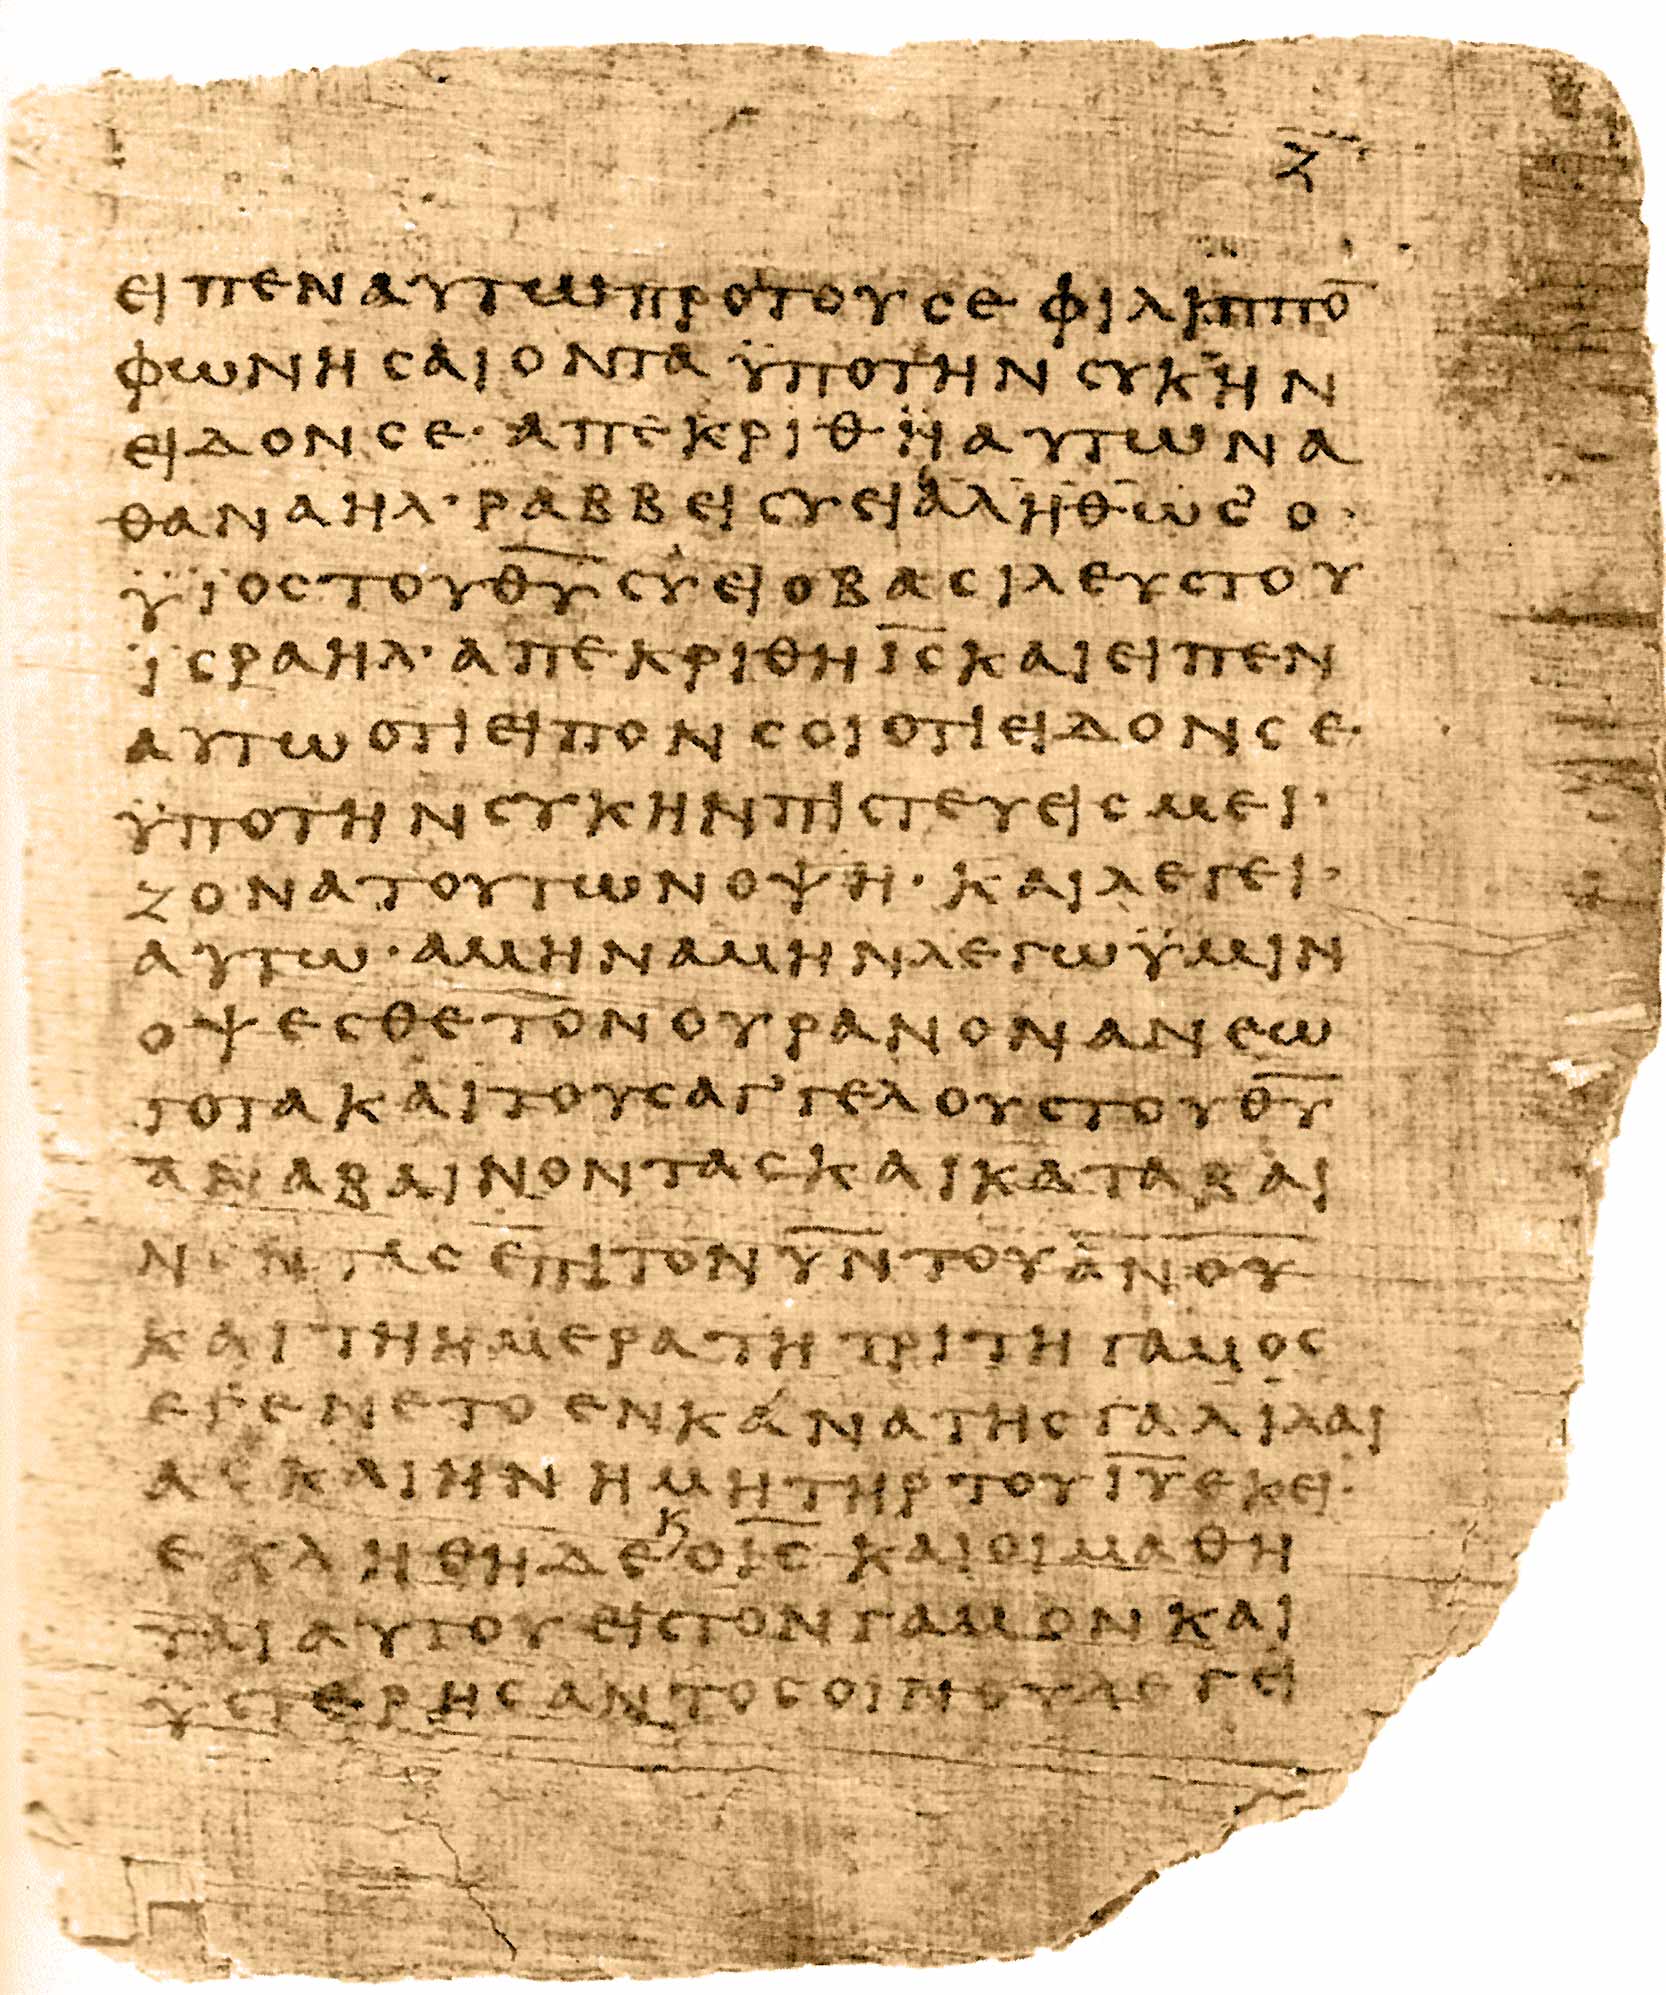 ζ
ειπεν αυτω προ του σε φιλιππο̅
φωνησαι οντα ϋπο την συκην
ειδον σε· απεκριθη αυτω να
θαναηλ· ραββει συ ει αληθως ο·
ϋιος του θ̅υ̅ συ ει ο βασιλευς του
ϊσραηλ· απεκριθη ι̅ς̅ και ειπεν
αυτω οτι ειπον σοι οτι ειδον σε·
ϋπο την συκην πιστευεις μει·
ζονα τουτων οψη· και λεγει·
αυτω· αμην αμην λεγω ϋμιν
οψεσθε τον ουρανον ανεω
γοτα και τους αγ᾽γελους του θ̅υ̅
αναβαινοντας και καταβαι
νοντας επι τον υ̅ν̅ του α̅ν̅ο̅υ̅
και τη ημερα τη τριτη γαμος
εγενετο εν κανα της γαλιλαι
ας και ην η μητηρ του ι̅υ̅ εκει·
εκληθη δε κ ο ι̅ς̅ και οι μαθη
ται αυτου εις τον γαμον και
ϋστερησαντος οινου λεγει